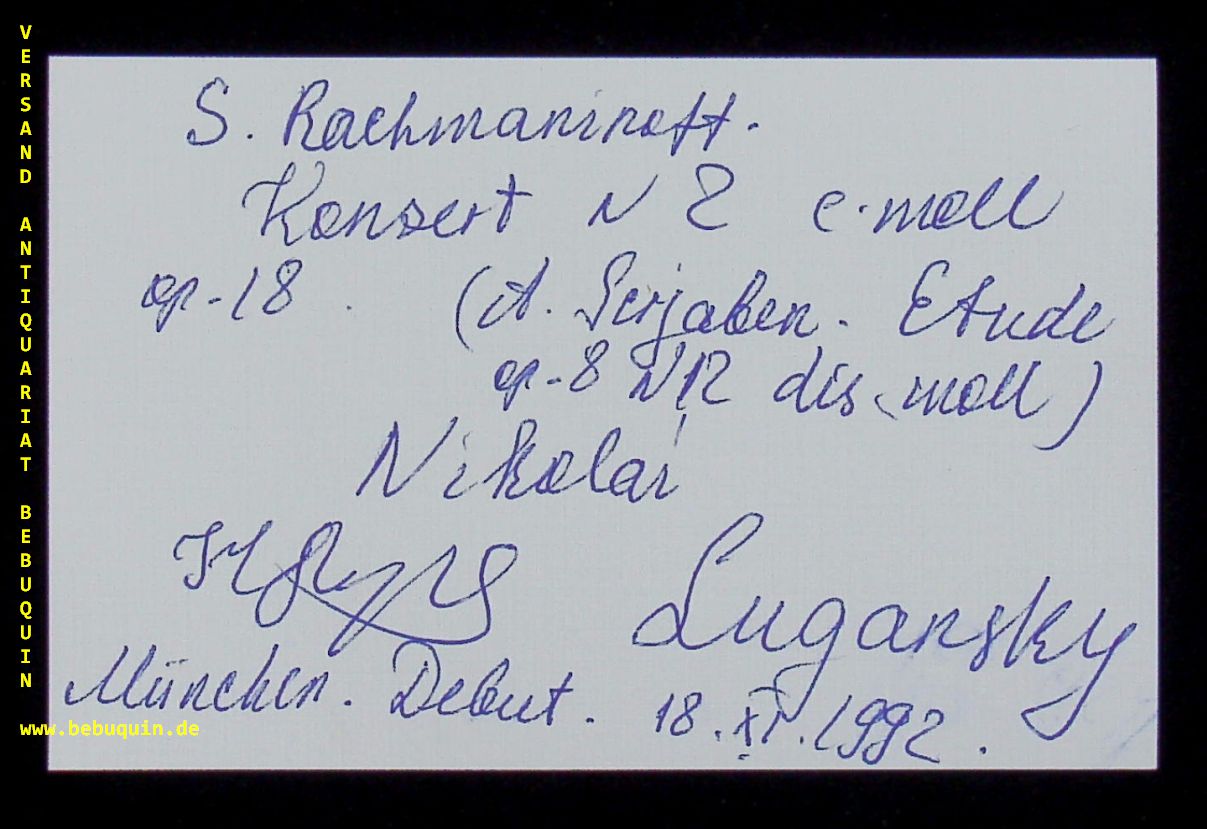 S. Rachmaninoff.
Konzert N 2 c-moll
op-18. (A. Scrjaben. Etude
op-8 N12 dis-moll)
Nikolai
Lugansky
München. Debut. 18.XI.1992.
VERSAND ANTIQUARIAT BEBUQUIN
www.bebuquin.de